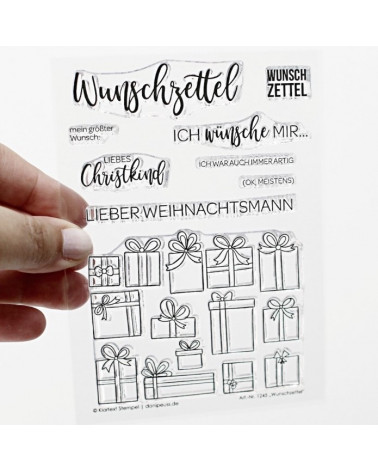 Wunschzettel
WUNSCH
ZETTEL
mein größter
Wunsch:
ICH wünsche MIR...
LIEBES
Christkind
ICH WAR AUCH IMMER ARTIG
(OK, MEISTENS)
LIEBER WEIHNACHTSMANN
© Klartext Stempel / danipeuss.de
Art.-Nr. 1248 „Wunschzettel“